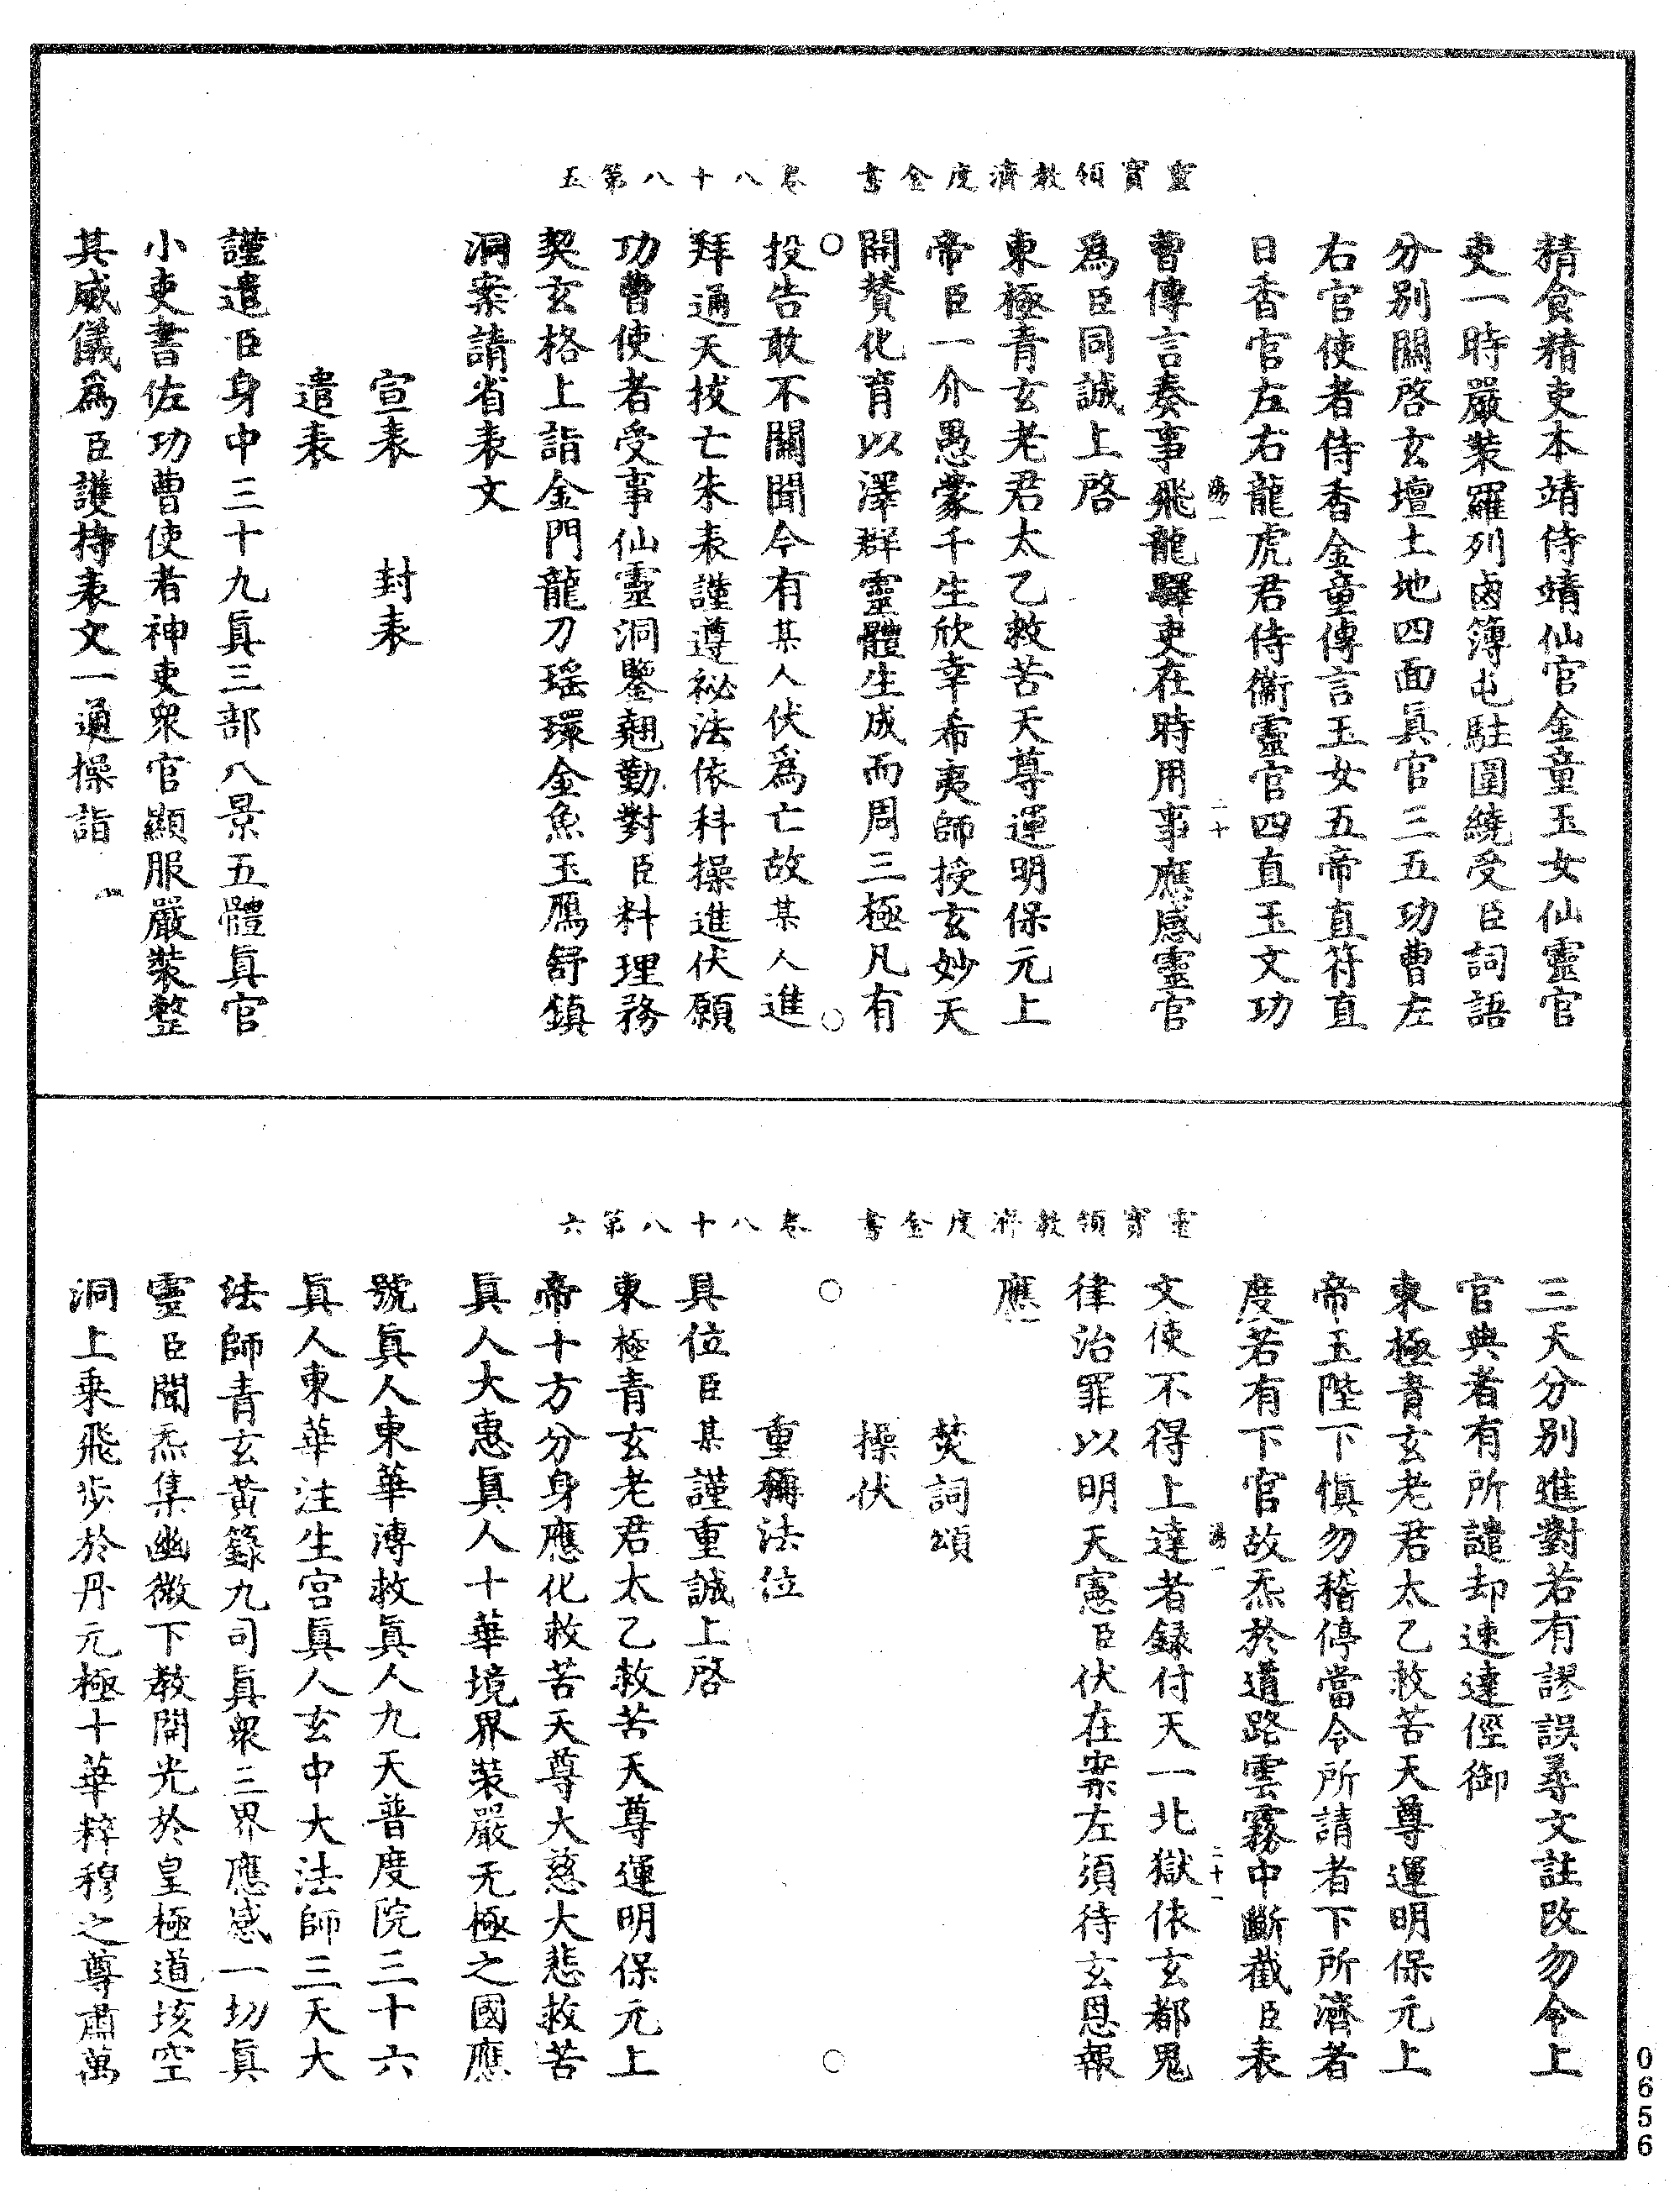 靈寶領教濟度金書 卷八十八第五
精食精吏本靖侍靖仙官金童玉女仙靈官
吏一時嚴裝羅列鹵簿屯駐圍繞受臣詞語
分別關啓玄壇土地四面眞官三五功曹左
右官使者侍香金童傳言玉女五帝直符直
日香官左右龍虎君侍衞靈官四直玉文功
二十
曹傳言奏事飛龍驛吏在時用事應感靈官
爲臣同誠上啓
東極青玄老君太乙救苦天尊運明保元上
帝臣一介愚蒙千生欣幸希夷師授玄妙天
開賛化育以澤群靈體生成而周三極凡有
投告敢不關聞今有某人伏爲亡故某人進
拜通天拔亡朱表謹遵祕法依科操進伏願
功曹使者受事仙靈洞鑒翹勤對臣料理務
契玄格上詣金門龍刀瑤環金魚玉鴈舒鎮
洞案請省表文
宣表 封表
遣表
謹遣臣身中三十九眞三部八景五體眞官
小吏書佐功曹使者神吏衆官顯服嚴裝整
其威儀爲臣護持表文一通操詣
靈寶領教濟度金書 卷八十八第六
三天分別進對若有謬誤尋文註改勿令上
官典者有所譴却速達徑御
東極青玄老君太乙救苦天尊運明保元上
帝玉陛下愼勿稽停當令所請者下所濟者
度若有下官故炁於道路雲霧中斷截臣表
二十一
文使不得上達者録付天一北獄依玄都鬼
律治罪以明天憲臣伏在案左須待玄恩報
應
焚詞頌
操伏
重稱法位
具位臣某謹重誠上啓
東極青玄老君太乙救苦天尊運明保元上
帝十方分身應化救苦天尊大慈大悲救苦
眞人大惠眞人十華境界裝嚴无極之國應
號眞人東華溥救眞人九天普度院三十六
眞人東華注生宫眞人玄中大法師三天大
法師青玄黃籙九司眞衆三界應感一切眞
靈臣聞炁集幽微下教開光於皇極道垓空
洞上乗飛步於丹元極十華粹穆之尊肅萬
0656